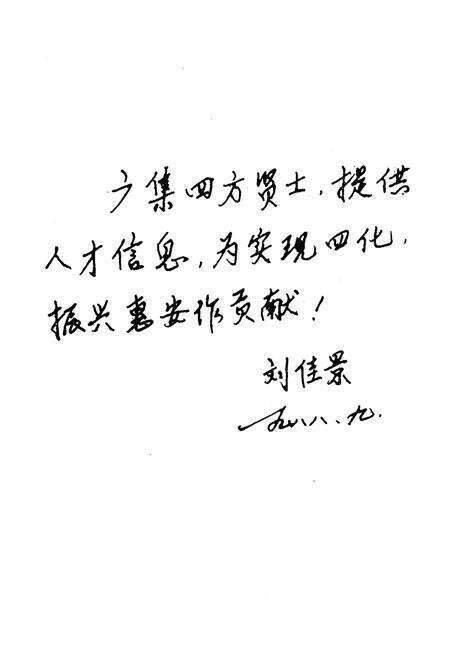 广集四方贤士，提供
人才信息，为实现四化，
振兴惠安作贡献！
刘佳景
一九八八、九.